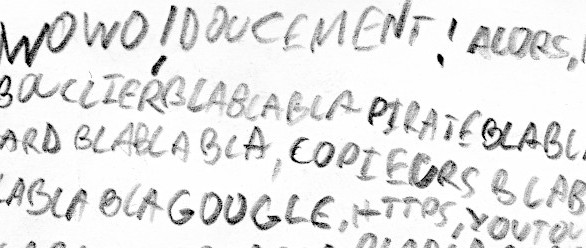 WOWO! DOUCEMENT! ALORS,
BOUCLIER BLABLABLA PIRATE BLABL
ARD BLABLABLA, COPIEURS BLAB
LABLABLA GOOGLE, HTTPS, YOUTOU